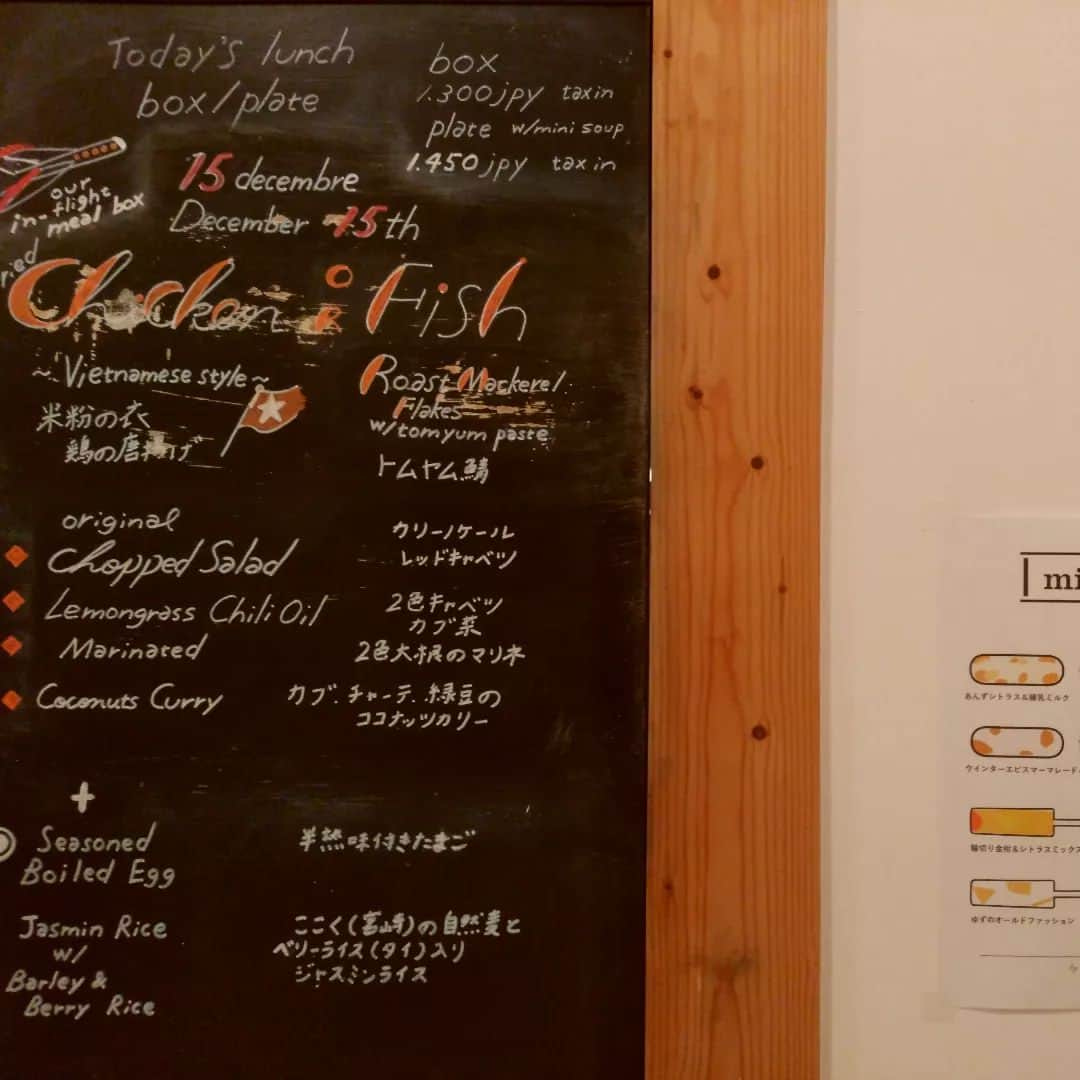 Today's lunch
box/plate
box
1.300jpy tax in
plate w/mini soup
1.450jpy tax in
our
in-flight
meal box
15 decembre
December 15th
Chicken
Fish
~Vietnamese style~
米粉の衣
鶏の唐揚げ
Roast Mackerel
Flakes
w/tomyum paste
トムヤム鯖
original
Chopped Salad
カリーノケール
レッドキャベツ
Lemongrass Chili Oil
Marinated
2色キャベツ
カブ菜
2色大根のマリネ
Coconuts Curry
カブ、チャーテ、緑豆の
ココナッツカリー
+
Seasoned
Boiled Egg
半熟味付きたまご
Jasmin Rice
w/
Barley &
Berry Rice
ここく(宮崎)の自然麦と
ベリーライス(タイ)入り
ジャスミンライス
mi
あんずシトラス&練乳ミルク
ウインターエビスマーマレード
輪切り金柑&シトラスミックス
ゆずのオールドファッション